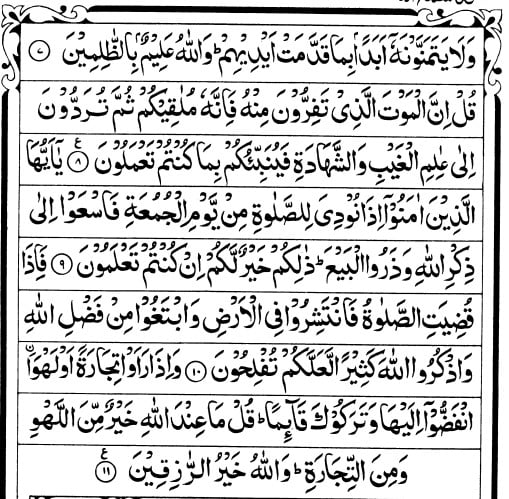 وَلَا يَتَمَنَّوْنَهٗۤ اَبَدًۢا بِمَا قَدَّمَتْ اَيْدِيْهِمْ ؕ وَاللّٰهُ عَلِيْمٌۢ بِالظّٰلِمِيْنَ ﴿۷﴾
قُلْ اِنَّ الْمَوْتَ الَّذِىْ تَفِرُّوْنَ مِنْهُ فَاِنَّهٗ مُلٰقِيْكُمْ ثُمَّ تُرَدُّوْنَ
اِلٰى عٰلِمِ الْغَيْبِ وَالشَّهَادَةِ فَيُنَبِّئُكُمْ بِمَا كُنْتُمْ تَعْمَلُوْنَ ﴿۸﴾ۧ يٰۤاَيُّهَا
الَّذِيْنَ اٰمَنُوْۤا اِذَا نُوْدِىَ لِلصَّلٰوةِ مِنْ يَّوْمِ الْجُمُعَةِ فَاسْعَوْا اِلٰى
ذِكْرِ اللّٰهِ وَذَرُوا الْبَيْعَ ؕ ذٰلِكُمْ خَيْرٌ لَّكُمْ اِنْ كُنْتُمْ تَعْلَمُوْنَ ﴿۹﴾ فَاِذَا
قُضِيَتِ الصَّلٰوةُ فَانْتَشِرُوْا فِى الْاَرْضِ وَابْتَغُوْا مِنْ فَضْلِ اللّٰهِ
وَاذْكُرُوا اللّٰهَ كَثِيْرًا لَّعَلَّكُمْ تُفْلِحُوْنَ ﴿۱۰﴾ وَاِذَا رَاَوْا تِجَارَةً اَوْ لَهْوَاۨ
انْفَضُّوْۤا اِلَيْهَا وَتَرَكُوْكَ قَآئِمًا ؕ قُلْ مَا عِنْدَ اللّٰهِ خَيْرٌ مِّنَ اللَّهْوِ
وَمِنَ التِّجَارَةِ ؕ وَاللّٰهُ خَيْرُ الرّٰزِقِيْنَ ﴿۱۱﴾ۧ